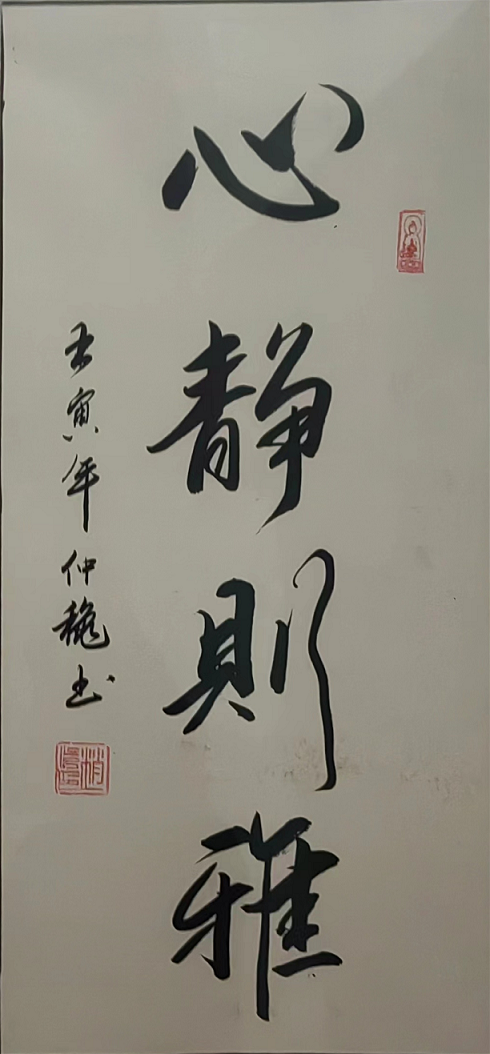 心静则雅
壬寅年仲龝书